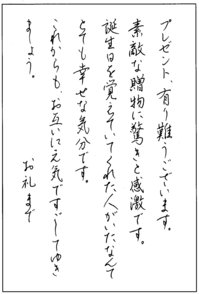 プレゼント、有り難うございます。
素敵な贈物に驚きと感激です。
誕生日を覚えていてくれた人がいたなんて
とても幸せな気分です。
これからも、お互いに元気ですごしてゆき
ましょう。
お礼まで